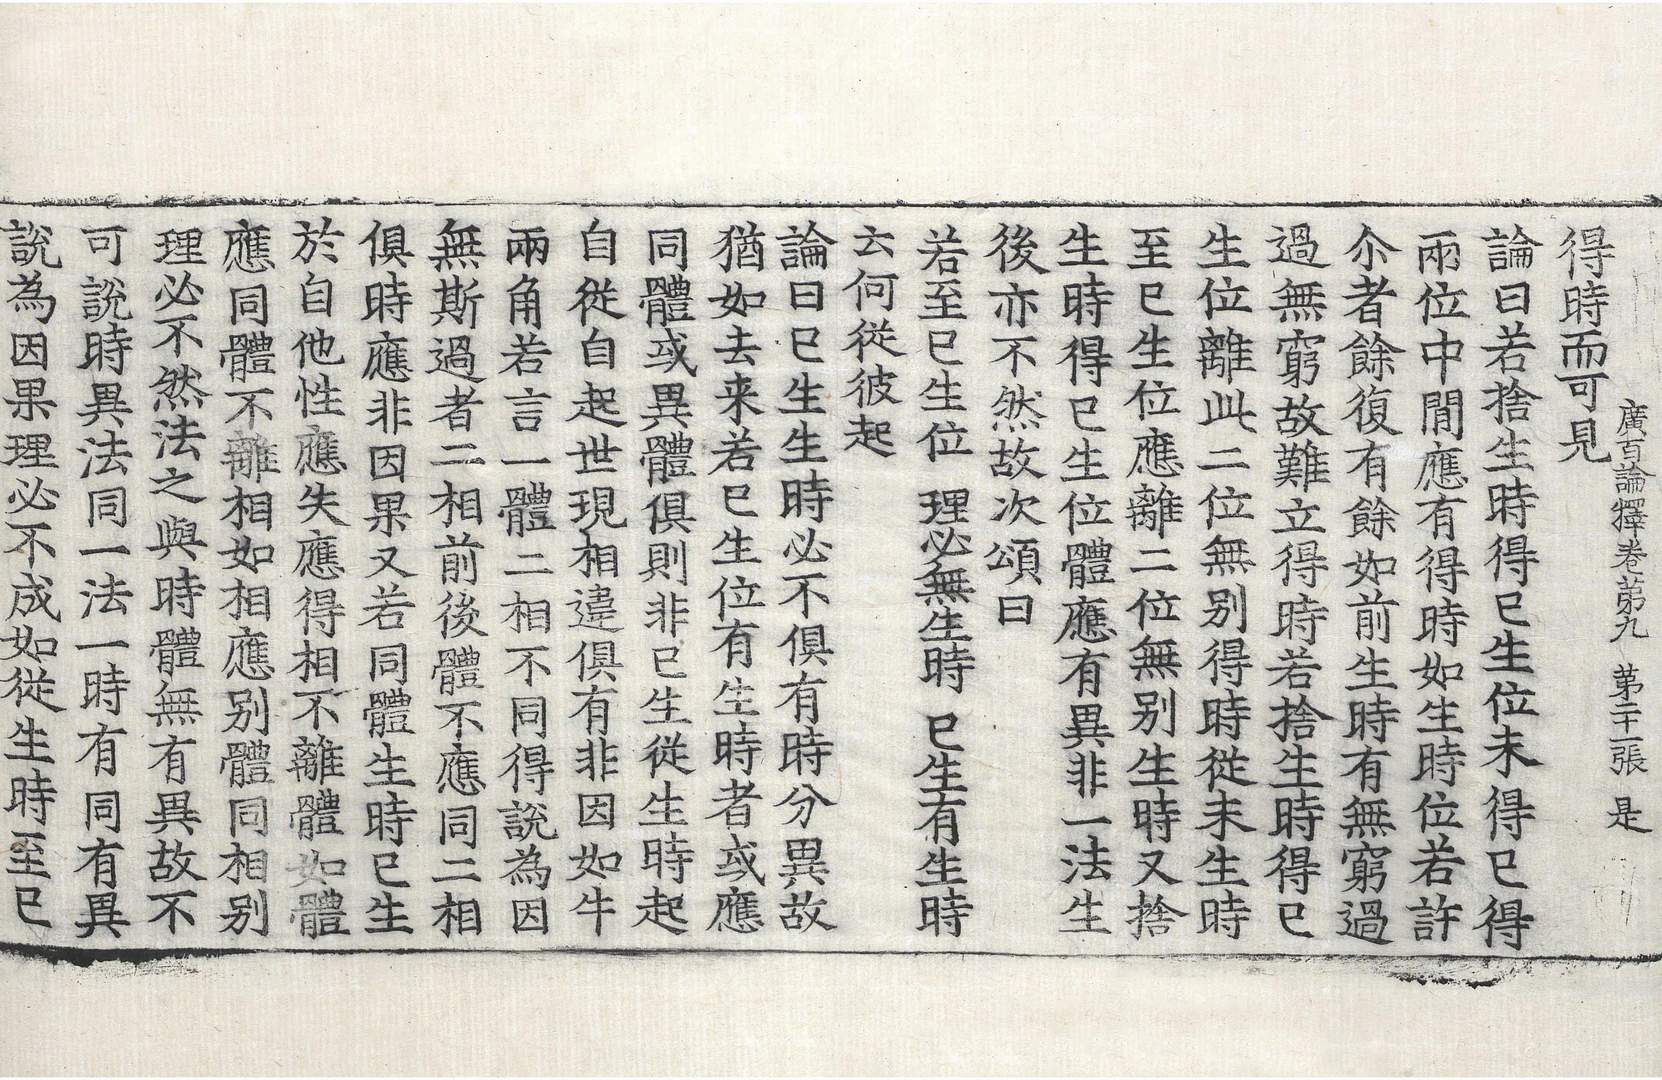 廣百論釋卷第九　第二十一張　是
得時而可見
論曰若捨生時得已生位未得已得
兩位中間應有得時如生時位若許
尒者餘復有餘如前生時有無窮過
過無窮故難立得時若捨生時得已
生位離此二位無別得時從未生時
至已生位應離二位無別生時又捨
生時得已生位體應有異非一法生
後亦不然故次頌曰
若至已生位　理必無生時　已生有生時
云何從彼起
論曰已生生時必不俱有時分異故
猶如去来若已生位有生時者或應
同體或異體俱則非已生從生時起
自從自起世現相違俱有非因如牛
兩角若言一體二相不同得說為因
無斯過者二相前後體不應同二相
俱時應非因果又若同體生時已生
於自他性應失應得相不離體如體
應同體不離相如相應別體同相別
理必不然法之與時體無有異故不
可說時異法同一法一時有同有異
說為因果理必不成如從生時至已